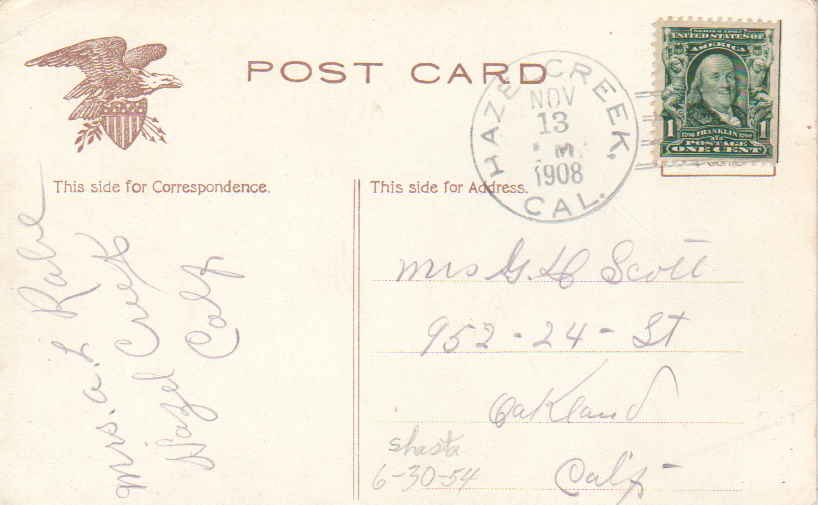 POST CARD
This side for Correspondence.
This side for Address.
HAZEL CREEK, CAL.
NOV
13
M
1908
UNITED STATES OF
AMERICA
1 FRANKLIN 1
POSTAGE
ONE CENT
Mrs. A. L. Rabe
Hazel Creek
Calf
Mrs G. H Scott
952-24-St
Oakland
Calf
Shasta
6-30-54